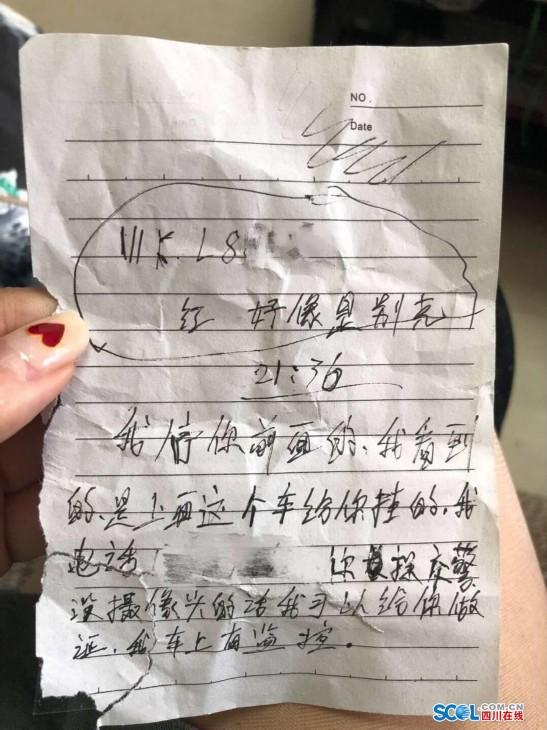 NO.
Date
川K.L8
红 好像是别克
21:36
我停你前面的、我看到
的、是上面这个车给你挂的、我
电话 你 探交警
没摄像头的话我可以给你做
证、我车上有监控.
SCOL.COM.CN
四川在线